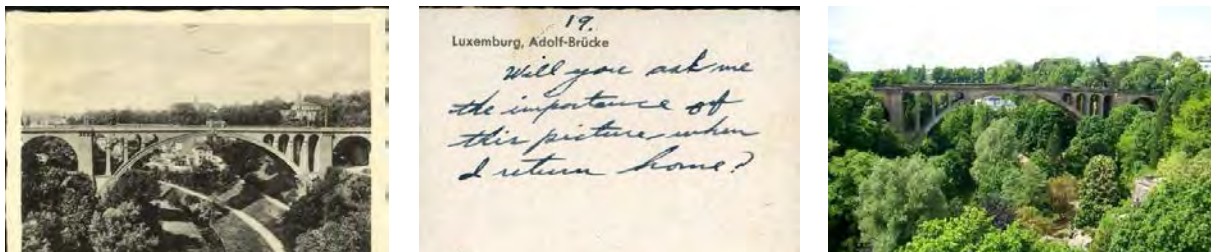 19.
Luxemburg, Adolf-Brücke
Will you ask me
the importance of
this picture when
I return home?